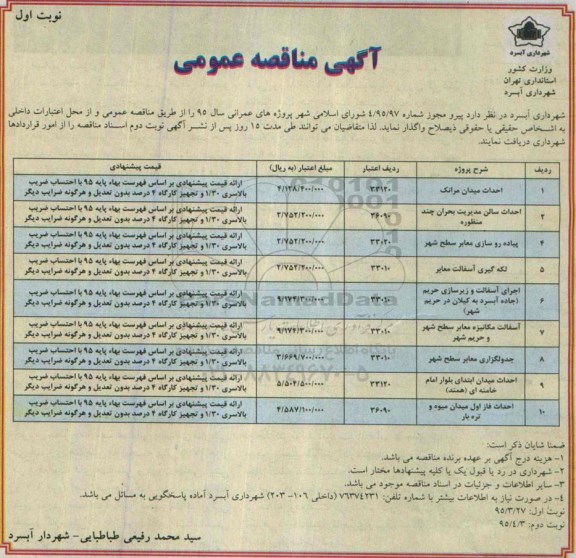 نوبت اول
شهرداری آبسرد
آگهی مناقصه عمومی
وزارت کشور
استانداری تهران
شهرداری آبسرد
شهرداری آبسرد در نظر دارد پیرو مجوز شماره ۴/۹۵/۹۷ شورای اسلامی شهر پروژه های عمرانی سال ۹۵ را از طریق مناقصه عمومی و از محل اعتبارات داخلی
به اشخاص حقیقی یا حقوقی ذیصلاح واگذار نماید. لذا متقاضیان می توانند طی مدت ۱۵ روز پس از نشر آگهی نوبت دوم اسناد مناقصه را از امور قراردادها
شهرداری دریافت نمایند.
ردیف شرح پروژه ردیف اعتبار مبلغ اعتبار (به ریال) قیمت پیشنهادی
۱ احداث میدان مرانک ۳۳۱۲۰ ۴/۱۲۸/۴۰۰/۰۰۰ ارائه قیمت پیشنهادی بر اساس فهرست بهاء پایه ۹۵ با احتساب ضریب
بالاسری ۱/۳۰ و تجهیز کارگاه ۴ درصد بدون تعدیل و هرگونه ضرایب دیگر
۲ احداث سالن مدیریت بحران چند
منظوره ۳۶۰۹۰ ۲/۷۵۲/۲۰۰/۰۰۰ ارائه قیمت پیشنهادی بر اساس فهرست بهاء پایه ۹۵ با احتساب ضریب
بالاسری ۱/۳۰ و تجهیز کارگاه ۴ درصد بدون تعدیل و هرگونه ضرایب دیگر
۴ پیاده رو سازی معابر سطح شهر ۳۳۰۲۰ ۲/۷۵۲/۲۰۰/۰۰۰ ارائه قیمت پیشنهادی بر اساس فهرست بهاء پایه ۹۵ با احتساب ضریب
بالاسری ۱/۳۰ و تجهیز کارگاه ۴ درصد بدون تعدیل و هرگونه ضرایب دیگر
۵ لکه گیری آسفالت معابر ۳۳۰۱۰ ۲/۷۵۲/۲۰۰/۰۰۰ ارائه قیمت پیشنهادی بر اساس فهرست بهاء پایه ۹۵ با احتساب ضریب
بالاسری ۱/۳۰ و تجهیز کارگاه ۴ درصد بدون تعدیل و هرگونه ضرایب دیگر
۶ اجرای آسفالت و زیرسازی حریم
(جاده آبسرد به کیلان در حریم
شهر) ۳۳۰۱۰ ۹/۱۷۴/۳۰۰/۰۰۰ ارائه قیمت پیشنهادی بر اساس فهرست بهاء پایه ۹۵ با احتساب ضریب
بالاسری ۱/۳۰ و تجهیز کارگاه ۴ درصد بدون تعدیل و هرگونه ضرایب دیگر
۷ آسفالت مکانیزه معابر سطح شهر
و حریم شهر ۳۳۰۱۰ ۹/۱۷۴/۳۰۰/۰۰۰ ارائه قیمت پیشنهادی بر اساس فهرست بهاء پایه ۹۵ با احتساب ضریب
بالاسری ۱/۳۰ و تجهیز کارگاه ۴ درصد بدون تعدیل و هرگونه ضرایب دیگر
۸ جدولگزاری معابر سطح شهر ۳۳۰۱۰ ۳/۶۶۹/۷۰۰/۰۰۰ ارائه قیمت پیشنهادی بر اساس فهرست بهاء پایه ۹۵ با احتساب ضریب
بالاسری ۱/۳۰ و تجهیز کارگاه ۴ درصد بدون تعدیل و هرگونه ضرایب دیگر
۹ احداث میدان ابتدای بلوار امام
خامنه ای (همند) ۳۳۱۲۰ ۵/۵۰۴/۵۰۰/۰۰۰ ارائه قیمت پیشنهادی بر اساس فهرست بهاء پایه ۹۵ با احتساب ضریب
بالاسری ۱/۳۰ و تجهیز کارگاه ۴ درصد بدون تعدیل و هرگونه ضرایب دیگر
۱۰ احداث فاز اول میدان میوه و
تره بار ۳۶۰۹۰ ۴/۵۸۷/۱۰۰/۰۰۰ ارائه قیمت پیشنهادی بر اساس فهرست بهاء پایه ۹۵ با احتساب ضریب
بالاسری ۱/۳۰ و تجهیز کارگاه ۴ درصد بدون تعدیل و هرگونه ضرایب دیگر
ضمنا شایان ذکر است:
۱- هزینه درج آگهی بر عهده برنده مناقصه می باشد.
۲- شهرداری در رد یا قبول یک یا کلیه پیشنهادها مختار است.
۳- سایر اطلاعات و جزئیات در اسناد مناقصه موجود می باشد.
۴- در صورت نیاز به اطلاعات بیشتر با شماره تلفن: ۷۶۳۷۴۲۳۱ (داخلی ۱۰۶- ۲۰۳) شهرداری آبسرد آماده پاسخگویی به مسائل می باشد.
نوبت اول: ۹۵/۳/۲۷
نوبت دوم: ۹۵/۴/۳
سید محمد رفیعی طباطبایی- شهردار آبسرد